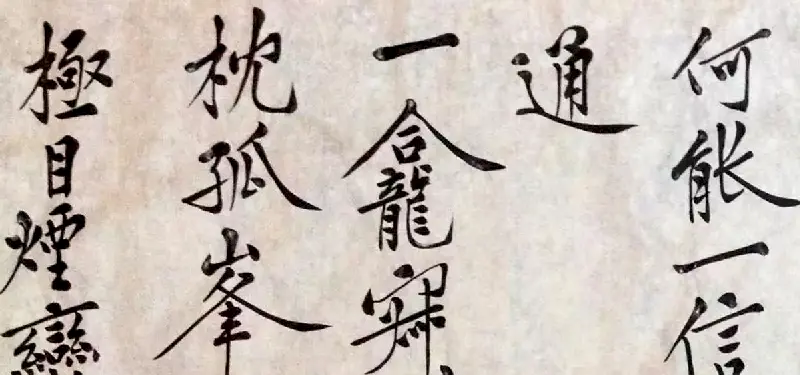 何能一信
通
一龕寐
枕孤峯
極目煙